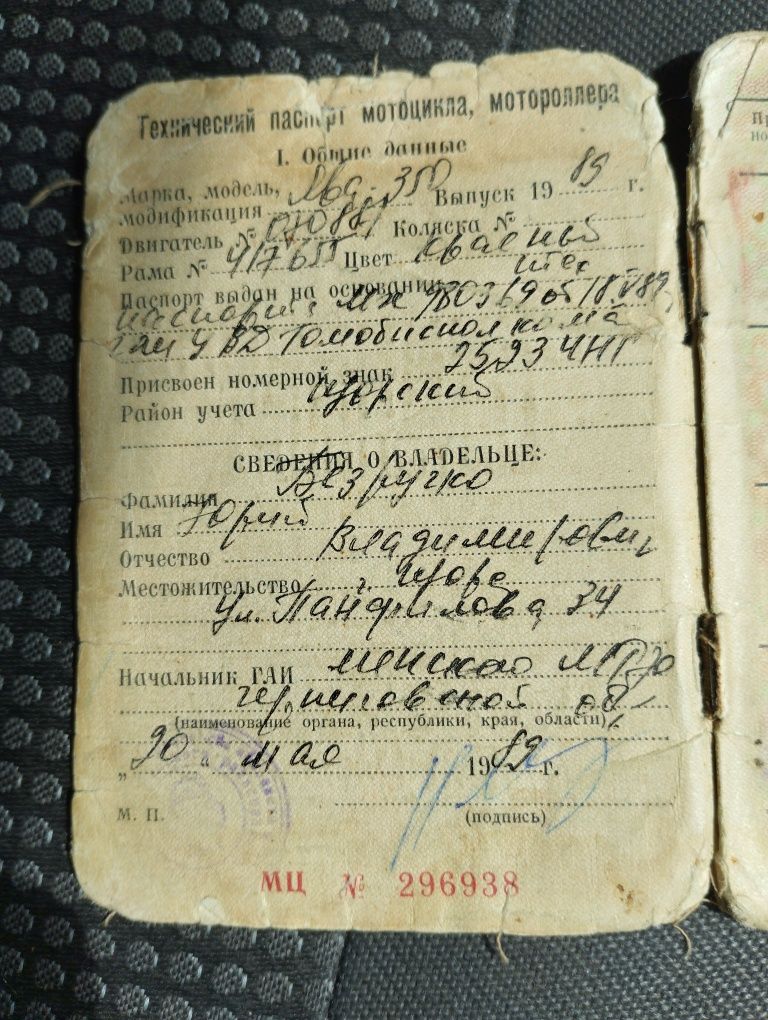 Технический паспорт мотоцикла, мотороллера
I. Общие данные
Марка, модель, Ява-350 Выпуск 19 89 г.
модификация
Двигатель № Коляска №
Рама № 417655 Цвет красный
Паспорт выдан на основании
паспорт МХ от 18 V 89
ГАИ УВД исполкома
Присвоен номерной знак 2523 ЧНГ
Район учета Щорский
СВЕДЕНИЯ О ВЛАДЕЛЬЦЕ:
Фамилия Безручко
Имя Юрий
Отчество Владимирович
Местожительство г. Щорс
ул. Панфилова, 34
Начальник ГАИ Менского МРЭО
Черниговской об
(наименование органа, республики, края, области)
„20“ мая 1989 г.
М. П. (подпись)
МЦ № 296938